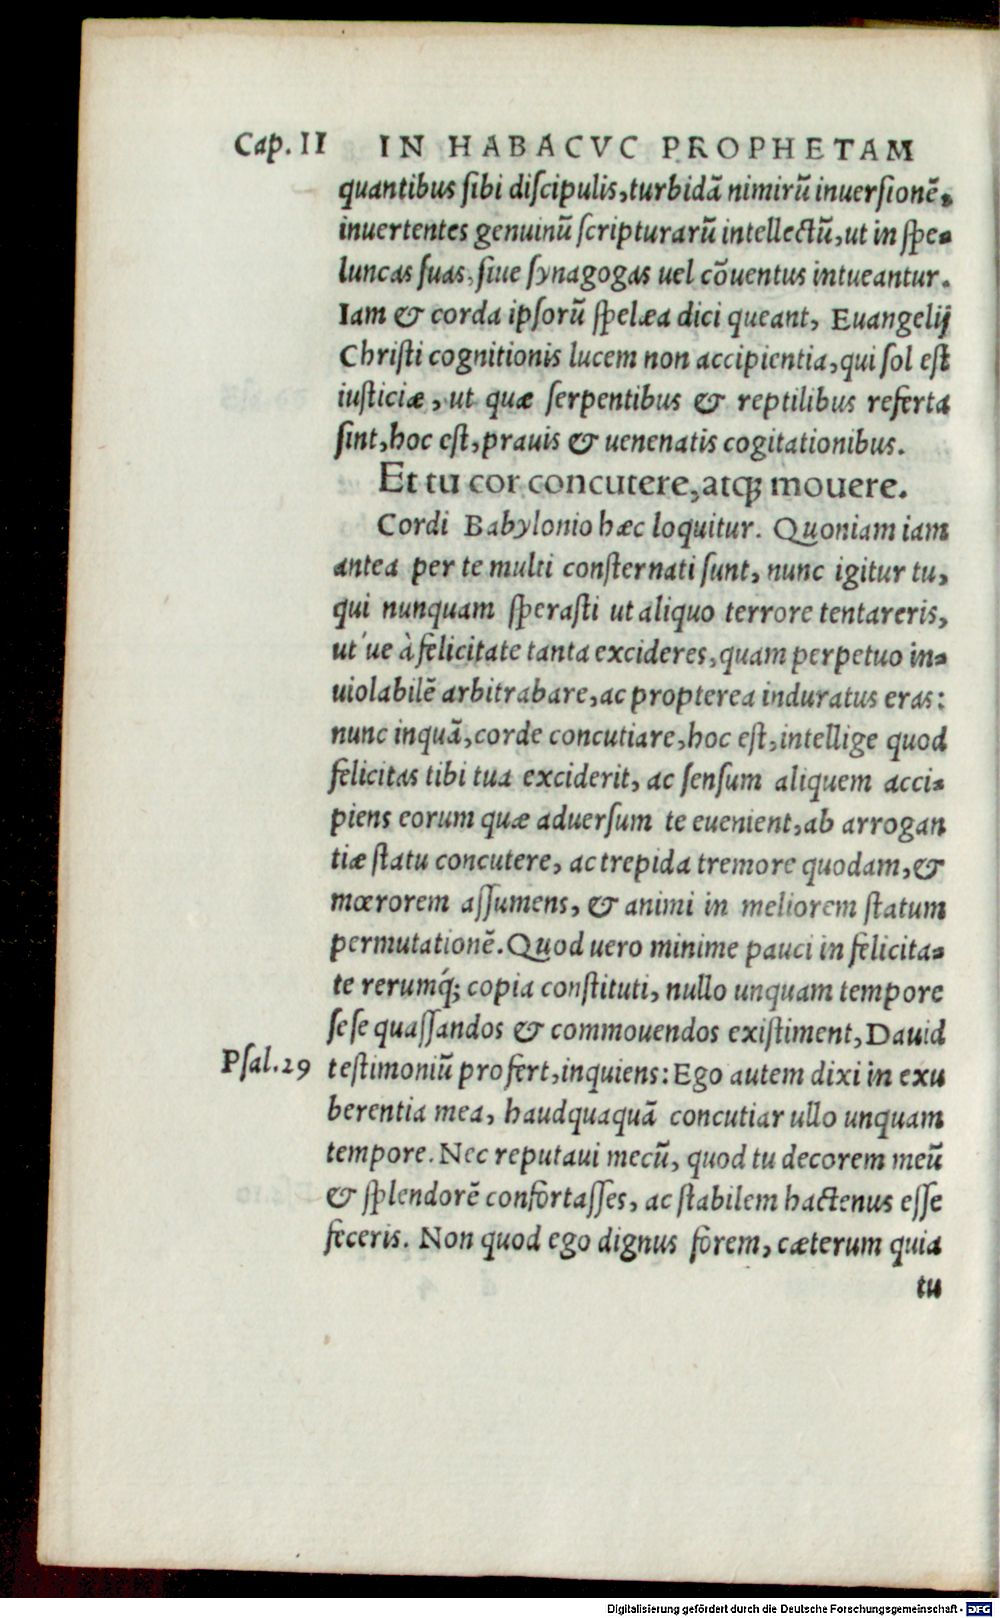 Cap. II IN HABACVC PROPHETAM
quantibus sibi discipulis, turbidā nimirū inuersionē,
inuertentes genuinū scripturarū intellectū, ut in spe-
luncas suas, siue synagogas uel cōuentus intueantur.
Iam & corda ipsorū spelæa dici queant, Euangelij
Christi cognitionis lucem non accipientia, qui sol est
iusticiæ, ut quæ serpentibus & reptilibus referta
sint, hoc est, prauis & uenenatis cogitationibus.
Et tu cor concutere, atq; mouere.
Cordi Babylonio hæc loquitur. Quoniam iam
antea per te multi consternati sunt, nunc igitur tu,
qui nunquam sperasti ut aliquo terrore tentareris,
ut´ue à felicitate tanta excideres, quam perpetuo in-
uiolabilē arbitrabare, ac propterea induratus eras:
nunc inquā, corde concutiare, hoc est, intellige quod
felicitas tibi tua exciderit, ac sensum aliquem acci-
piens eorum quæ aduersum te euenient, ab arrogan
tiæ statu concutere, ac trepida tremore quodam, &
mœrorem assumens, & animi in meliorem statum
permutationē. Quod uero minime pauci in felicita-
te rerumq́; copia constituti, nullo unquam tempore
sese quassandos & commouendos existiment, Dauid
Psal. 29 testimoniū profert, inquiens: Ego autem dixi in exu
berentia mea, haudquaquā concutiar ullo unquam
tempore. Nec reputaui mecū, quod tu decorem meū
& splendorē confortasses, ac stabilem hactenus esse
feceris. Non quod ego dignus forem, cæterum quia
tu
Digitalisierung gefördert durch die Deutsche Forschungsgemeinschaft - DFG